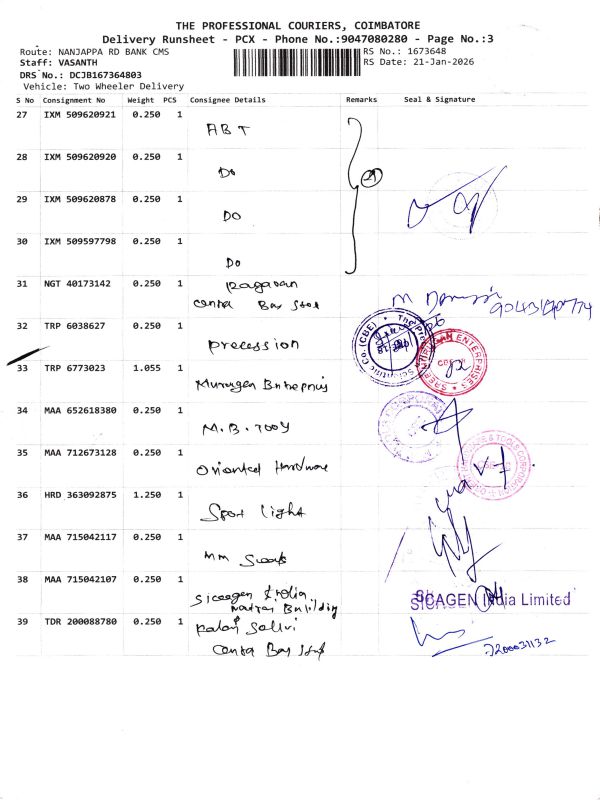 THE PROFESSIONAL COURIERS, COIMBATORE
Delivery Runsheet - PCX - Phone No.:9047080280 - Page No.:3
Route: NANJAPPA RD BANK CMS RS No.: 1673648
Staff: VASANTH RS Date: 21-Jan-2026
DRS No.: DCJB167364803
Vehicle: Two Wheeler Delivery
S No Consignment No Weight PCS Consignee Details Remarks Seal & Signature
27 IXM 509620921 0.250 1
ABT
28 IXM 509620920 0.250 1
Do
29 IXM 509620878 0.250 1
DO
30 IXM 509597798 0.250 1
Do
31 NGT 40173142 0.250 1
32 TRP 6038627 0.250 1
Precession
33 TRP 6773023 1.055 1
Murugan
34 MAA 652618380 0.250 1
M.B. TOOY
35 MAA 712673128 0.250 1
Oriental Hardware
36 HRD 363092875 1.250 1
Spot light
37 MAA 715042117 0.250 1
MM
38 MAA 715042107 0.250 1
Building
SICAGEN India Limited
39 TDR 200088780 0.250 1
7200031132